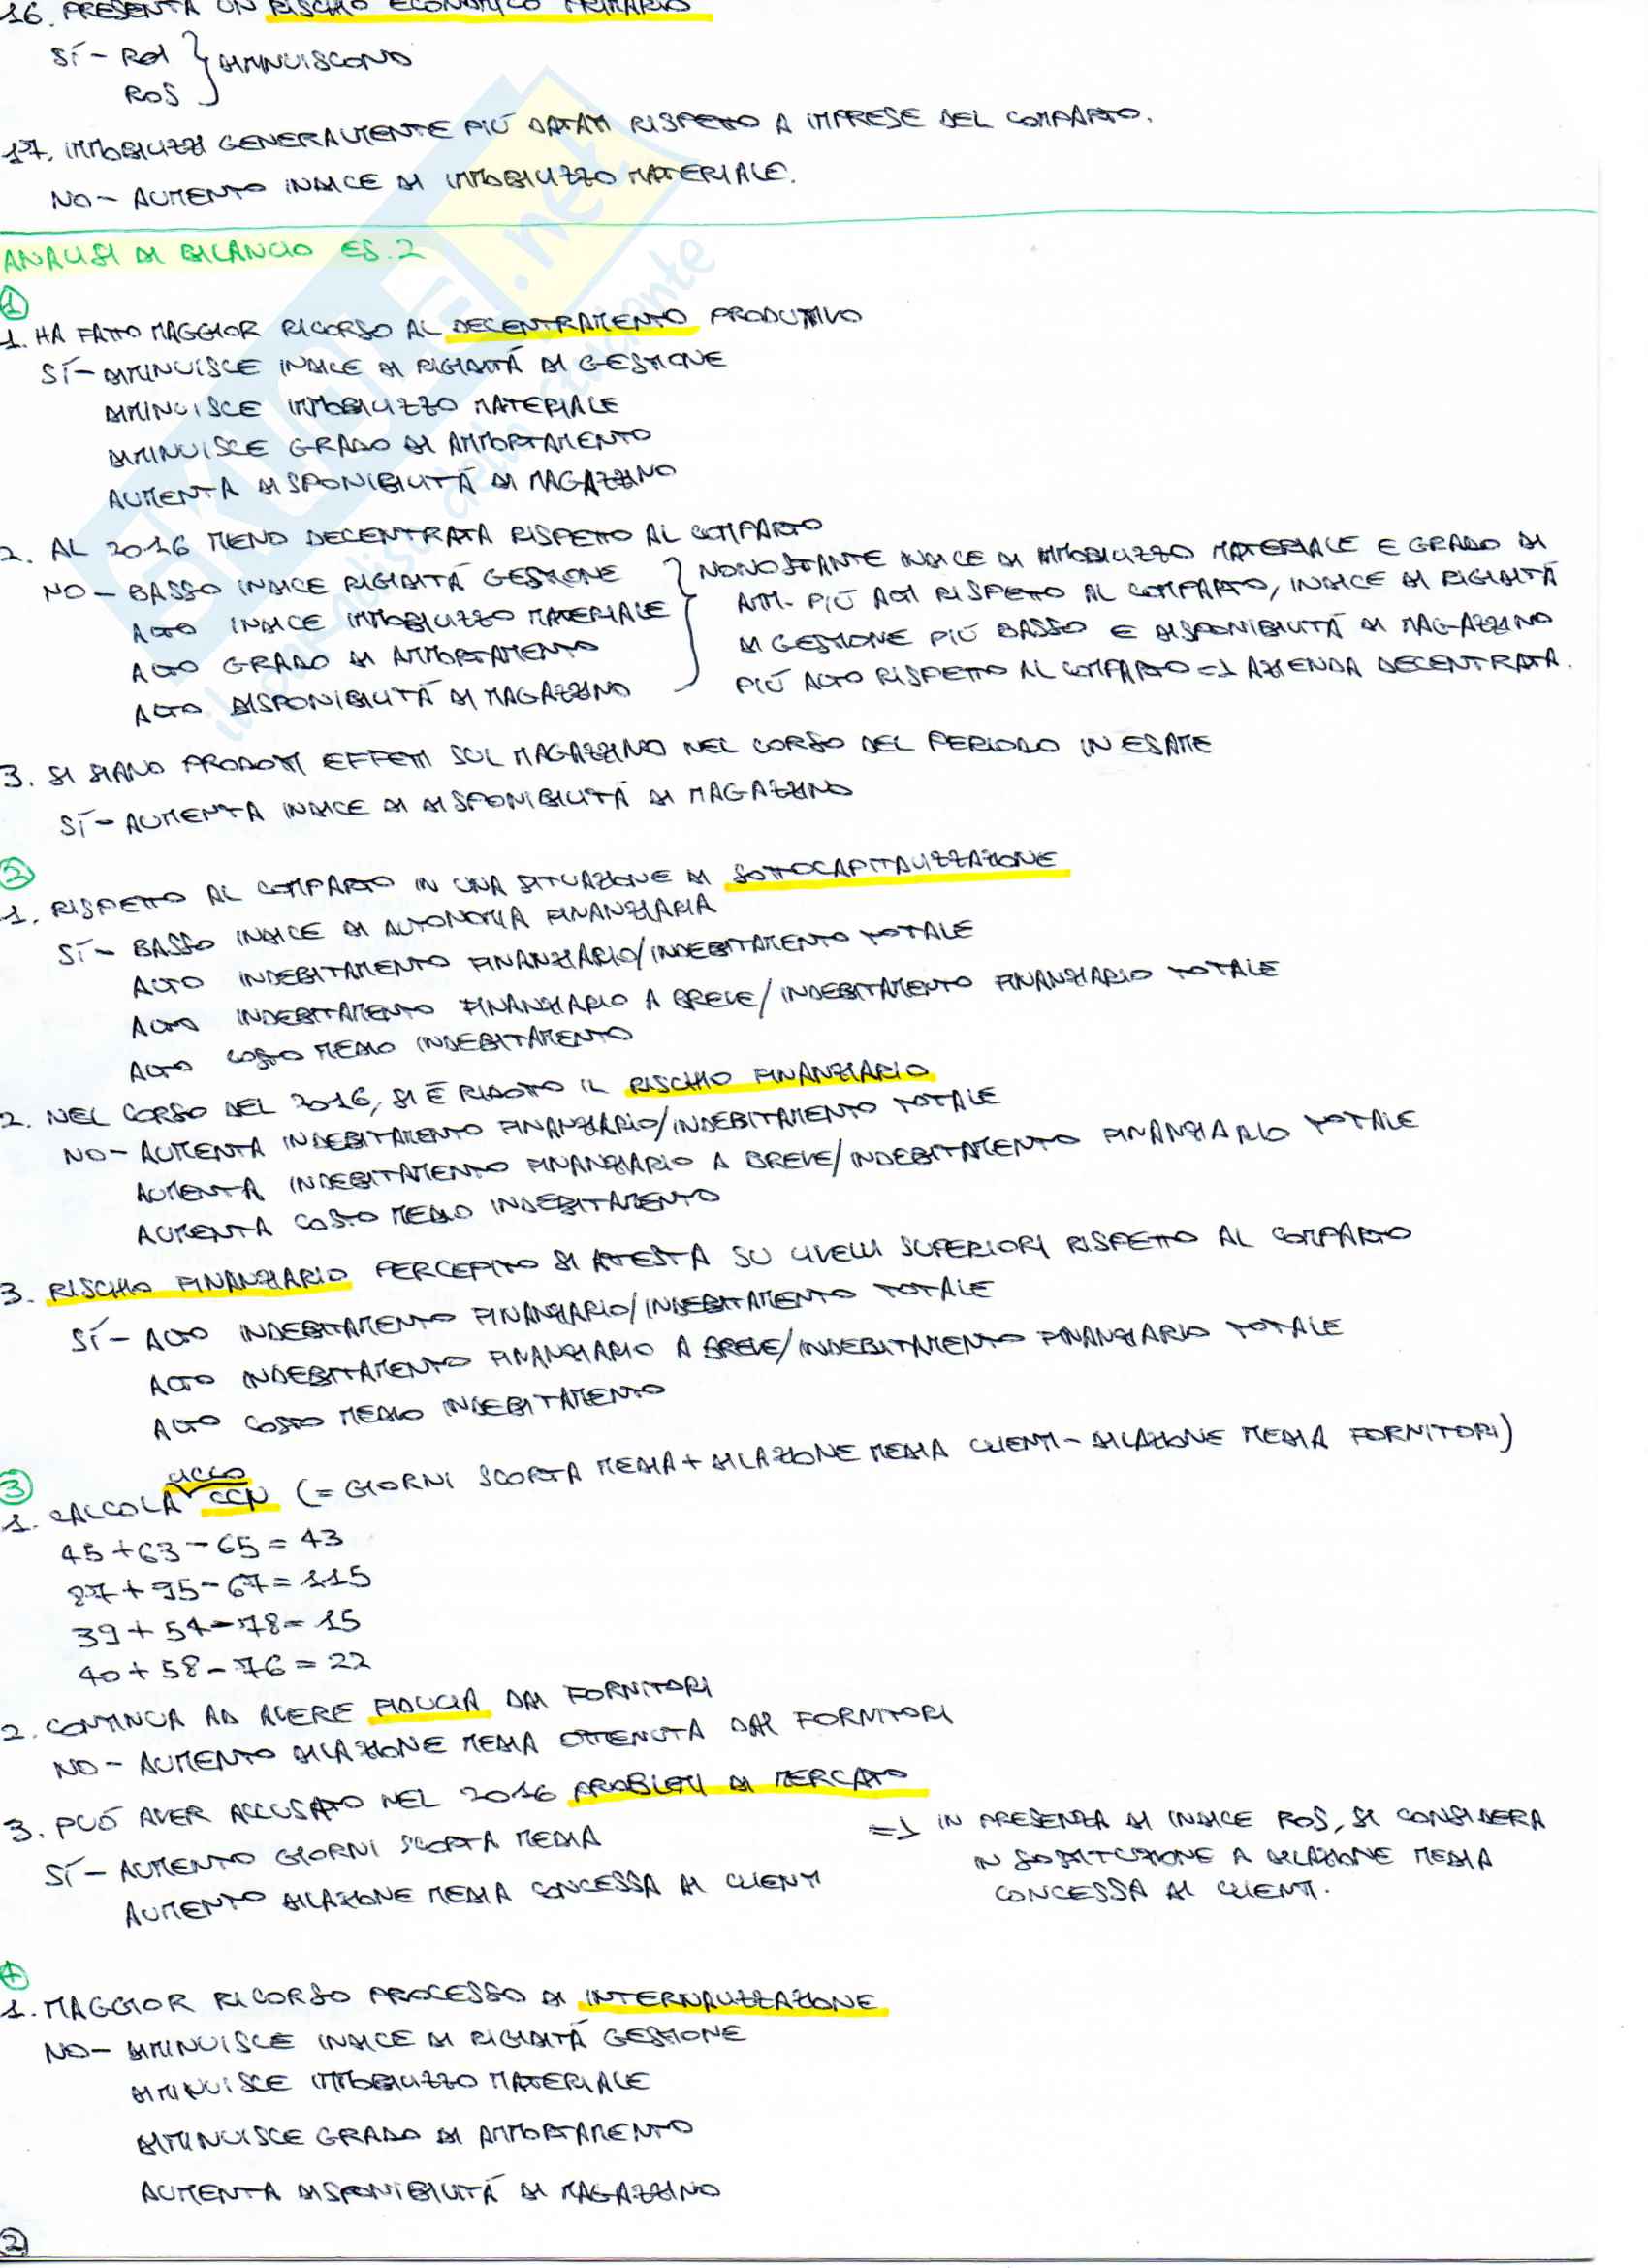 16. PRESENTA UN RISCHIO ECONOMICO PRIMARIO
SÍ - ROI } DIMINUISCONO
ROS
17. IMMOBILIZZI GENERALMENTE PIÚ DATATI RISPETTO A IMPRESE DEL COMPARTO.
NO - AUMENTO INDICE DI IMMOBILIZZO MATERIALE.
ANALISI DI BILANCIO ES. 2
1
1. HA FATTO MAGGIOR RICORSO AL DECENTRAMENTO PRODUTTIVO
SÍ - DIMINUISCE INDICE DI RIGIDITÁ DI GESTIONE
DIMINUISCE IMMOBILIZZO MATERIALE
DIMINUISCE GRADO DI AMMORTAMENTO
AUMENTA DISPONIBILITÁ DI MAGAZZINO
2. AL 2016 MENO DECENTRATA RISPETTO AL COMPARTO
NO - BASSO INDICE RIGIDITÁ GESTIONE
ALTO INDICE IMMOBILIZZO MATERIALE
ALTO GRADO DI AMMORTAMENTO
ALTO DISPONIBILITÁ DI MAGAZZINO
} NONOSTANTE INDICE DI IMMOBILIZZO MATERIALE E GRADO DI
AMM. PIÚ ALTI RISPETTO AL COMPARTO, INDICE DI RIGIDITÁ
DI GESTIONE PIÚ BASSO E DISPONIBILITÁ DI MAGAZZINO
PIÚ ALTO RISPETTO AL COMPARTO => AZIENDA DECENTRATA.
3. SI SIANO PRODOTTI EFFETTI SUL MAGAZZINO NEL CORSO DEL PERIODO IN ESAME
SÍ - AUMENTA INDICE DI DISPONIBILITÁ DI MAGAZZINO
2
1. RISPETTO AL COMPARTO IN UNA SITUAZIONE DI SOTTOCAPITALIZZAZIONE
SÍ - BASSO INDICE DI AUTONOMIA FINANZIARIA
ALTO INDEBITAMENTO FINANZIARIO/INDEBITAMENTO TOTALE
ALTO INDEBITAMENTO FINANZIARIO A BREVE/INDEBITAMENTO FINANZIARIO TOTALE
ALTO COSTO MEDIO INDEBITAMENTO
2. NEL CORSO DEL 2016, SI È RIDOTTO IL RISCHIO FINANZIARIO
NO - AUMENTA INDEBITAMENTO FINANZIARIO/INDEBITAMENTO TOTALE
AUMENTA INDEBITAMENTO FINANZIARIO A BREVE/INDEBITAMENTO FINANZIARIO TOTALE
AUMENTA COSTO MEDIO INDEBITAMENTO
3. RISCHIO FINANZIARIO PERCEPITO SI ATTESTA SU LIVELLI SUPERIORI RISPETTO AL COMPARTO
SÍ - ALTO INDEBITAMENTO FINANZIARIO/INDEBITAMENTO TOTALE
ALTO INDEBITAMENTO FINANZIARIO A BREVE/INDEBITAMENTO FINANZIARIO TOTALE
ALTO COSTO MEDIO INDEBITAMENTO
3
1. CALCOLA CICLO CCN (= GIORNI SCORTA MEDIA + DILAZIONE MEDIA CLIENTI - DILAZIONE MEDIA FORNITORI)
45 + 63 - 65 = 43
87 + 95 - 67 = 115
39 + 54 - 78 = 15
40 + 58 - 76 = 22
2. CONTINUA AD AVERE FIDUCIA DAI FORNITORI
NO - AUMENTO DILAZIONE MEDIA OTTENUTA DAI FORNITORI
3. PUÓ AVER ACCUSATO NEL 2016 PROBLEMI DI MERCATO
SÍ - AUMENTO GIORNI SCORTA MEDIA
AUMENTO DILAZIONE MEDIA CONCESSA AI CLIENTI
=> IN PRESENZA DI INDICE ROS, SI CONSIDERA
IN SOSTITUZIONE A DILAZIONE MEDIA
CONCESSA AI CLIENTI.
4
1. MAGGIOR RICORSO PROCESSO DI INTERNALIZZAZIONE
NO - DIMINUISCE INDICE DI RIGIDITÁ GESTIONE
DIMINUISCE IMMOBILIZZO MATERIALE
DIMINUISCE GRADO DI AMMORTAMENTO
AUMENTA DISPONIBILITÁ DI MAGAZZINO
2
SKUOLA.net
il paradiso dello studente